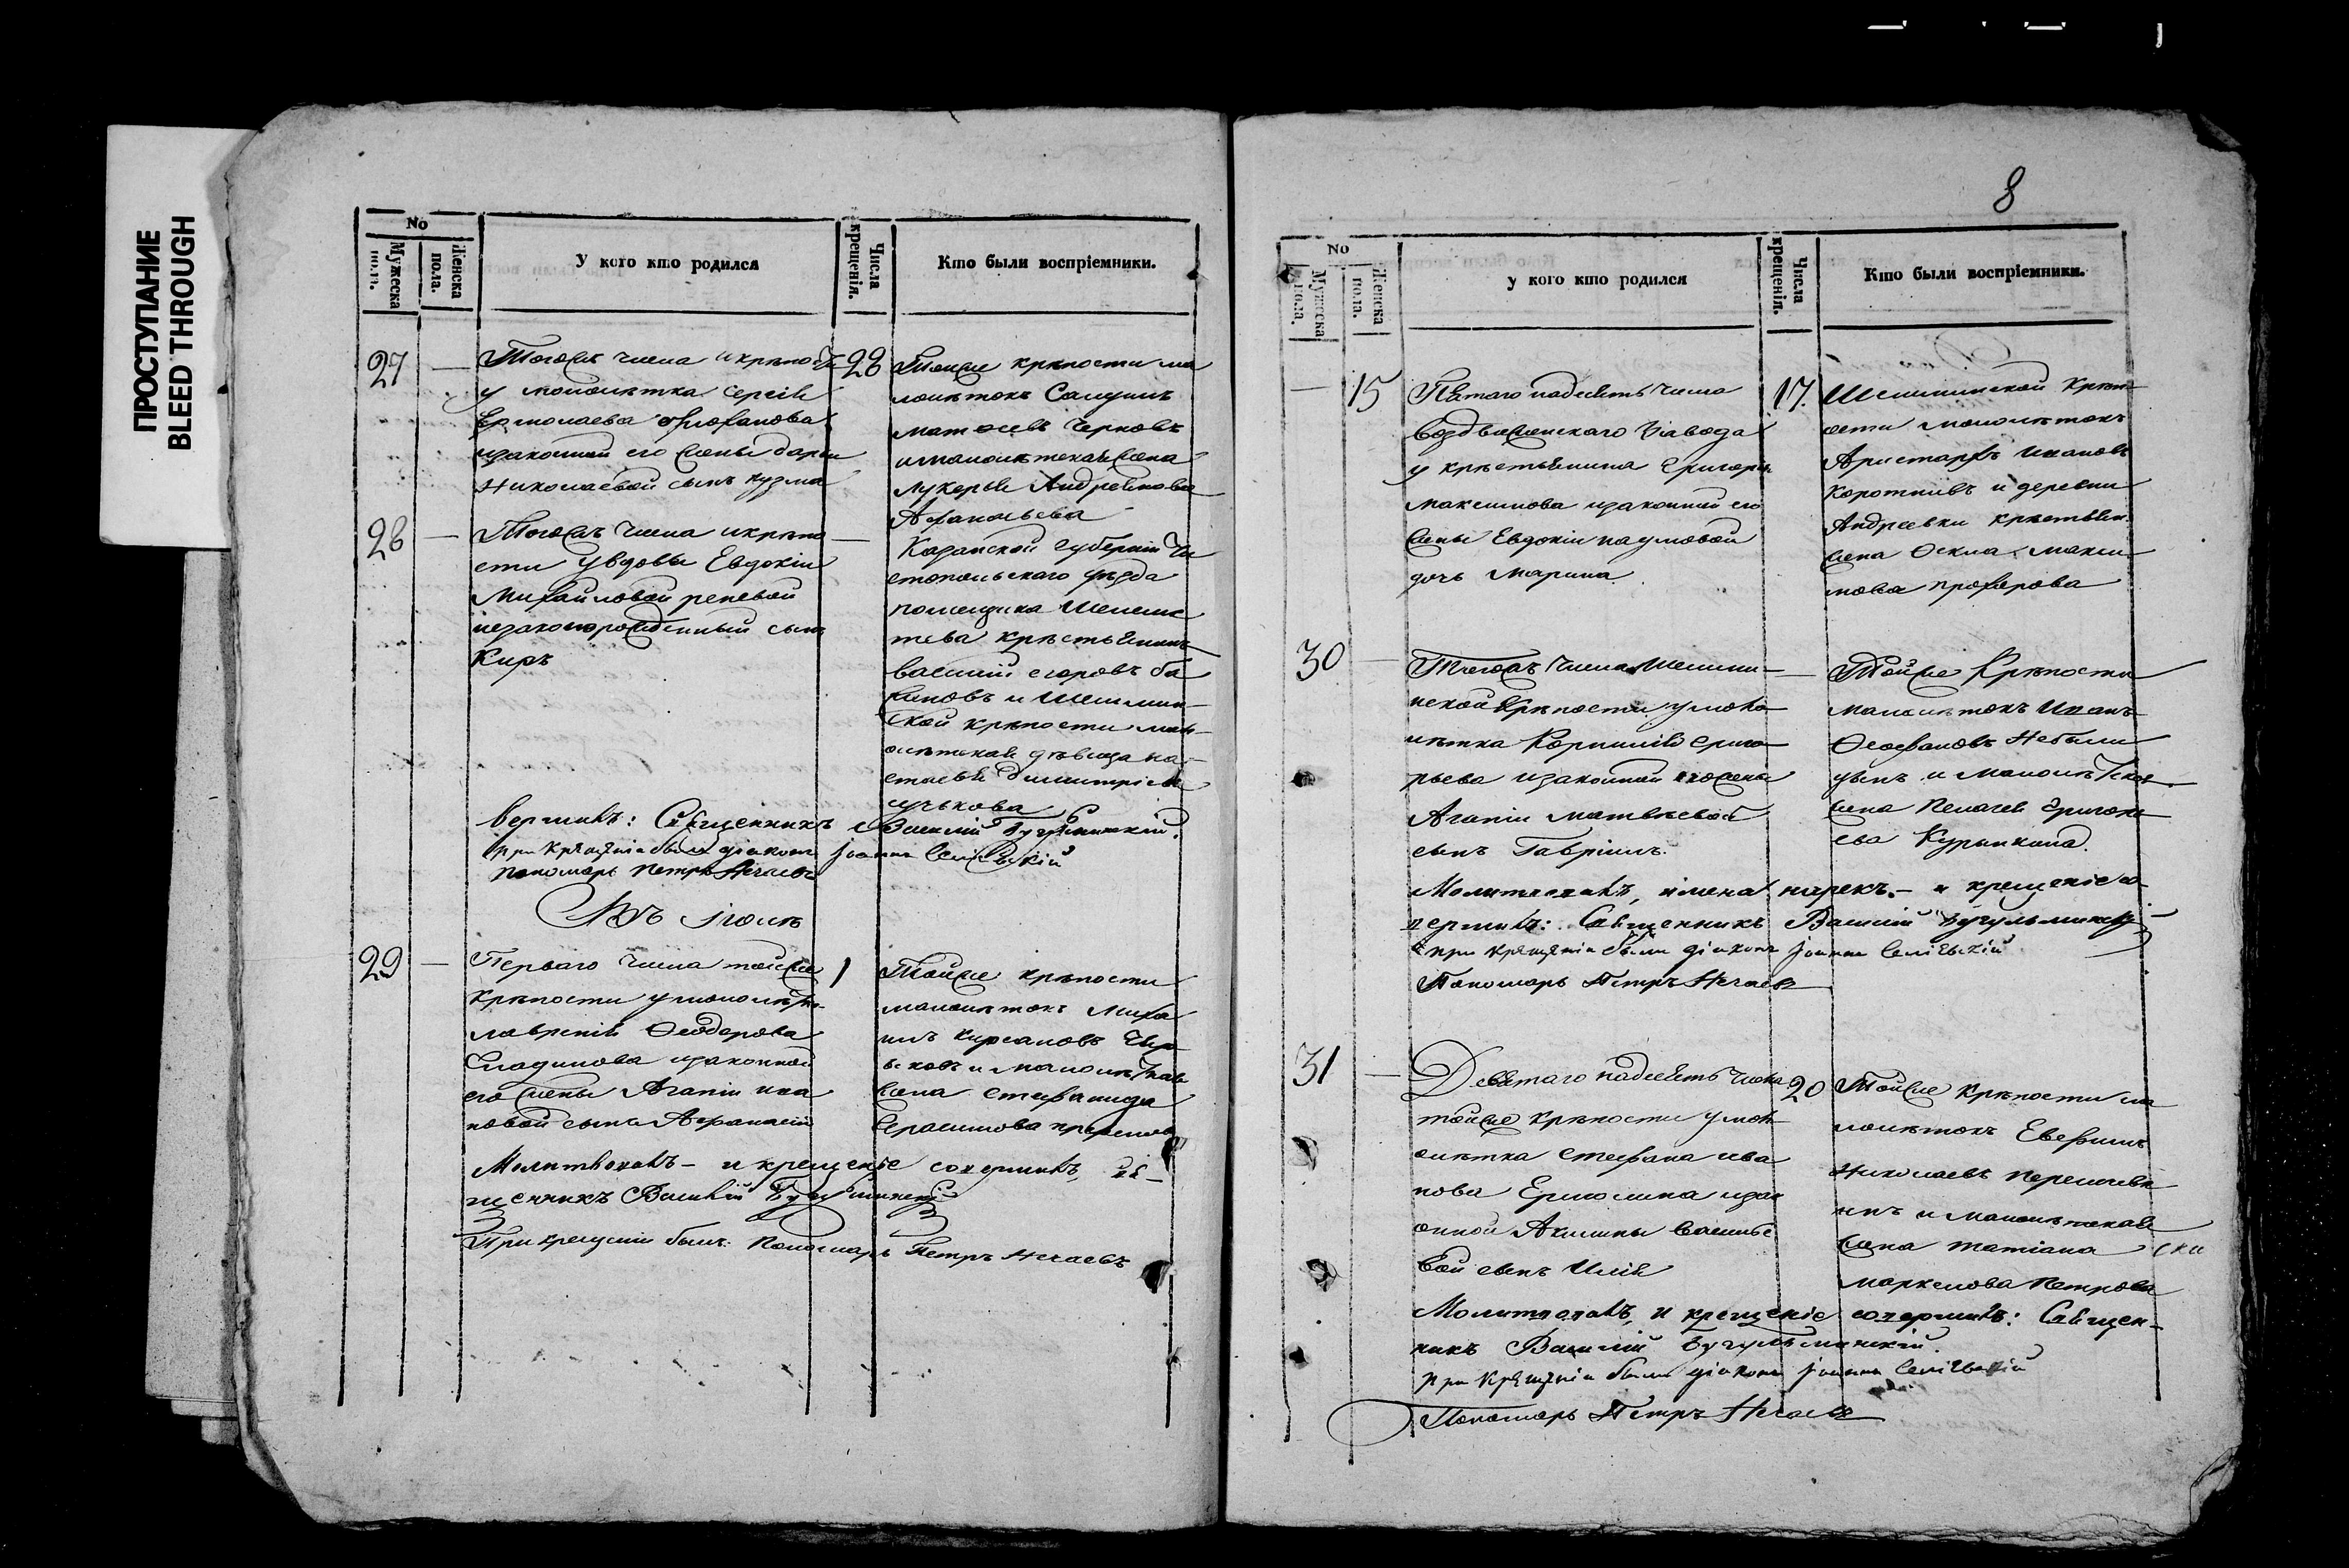 ПРОСТУПАНИЕ
BLEED THROUGH
No
Мужеска пола.
Женска пола.
У кого кто родился
Числа крещенія.
Кто были воспріемники.
27 — Тогожъ числа и крѣпос
у малолѣтка Сергія
Ермолаева
изаконной его жены Дарьи
Николаевой сынъ Кузма
28
Тойже крѣпости ма
лолѣтокъ
Черновъ
ималолѣтская жена
Лукерья Андреянова
Афанасьева
28 — Тогожъ числа икрѣпо
сти увдовы Евдокіи
Михайловой репевой
незаконорожденный сынъ
Киръ
—
Казанской Губерніи Чи
стопольскаго уѣзда
помещика
крѣстьянинъ
Василій егоровъ
и Шешмин
ской крѣпости мал
олѣтская дѣвица на
стасья Димитріева
вершилъ: Священникъ Василій Бугульминскій.
при крещеніи былъ діаконъ Іоаннъ
пономарь Петръ Нечаевъ
Въ іюлѣ
29 — Перваго числа тойже
крѣпости умалолѣтка
лаврентія Феодорова
изаконной
его жены Агапіи ива
новой сынъ Афанасій
1
Тойже крѣпости
малолѣтокъ Миха
илъ Кирсановъ
и малолѣтская
жена Стефанида
Герасимова
Молитвовалъ — и крещеніе совершилъ, Свя-
щенникъ Василій Бугульминскій
При крещеніи былъ: Пономарь Петръ Нечаевъ
8
No
Мужеска пола.
Женска пола.
у кого кто родился
Числа крещенія.
Кто были воспріемники.
— 15 Пятаго надесять числа
Воздвиженскаго Завода
у крѣстьянина Григорія
Максимова изаконной его
жены Евдокіи наумовой
дочь Марина.
17.
Шешминской крѣп-
ости малолѣтокъ
Аристархъ Ивановъ
и деревни
Андреевки крѣстьян.
жена Макси
мова прохорова
30 — Тогожъ числа Шешми-
нской крѣпости умало
лѣтка Корнилія Григо
рьева изаконной его жены
Агапіи Матвѣевой
сынъ Гавріилъ.
—
Тойже Крѣпости
малолѣтокъ Иванъ
Феофановъ
и малолѣтская
жена Пелагея Григорь
ева
Молитвовалъ, имена нарекъ. — и крещеніе со-
вершилъ: Священникъ Василій Бугульминскій
при крещеніи были діаконъ Іоаннъ
Пономарь Петръ Нечаевъ
31 — Девятаго надесять числа
тойже крѣпости умал
олѣтка Стефана ива
нова Ермолина изак
онной Акилины Василье
вой сынъ Илія
20
Тойже крѣпости ма
лолѣтокъ Евфимъ
Николаевъ
и малолѣтская
жена татіана
маркелова Петрова
Молитвовалъ, и крещеніе совершилъ: Священ-
никъ Василій Бугульминскій.
при крещеніи былъ діаконъ Іоаннъ
Пономарь Петръ Нечаевъ